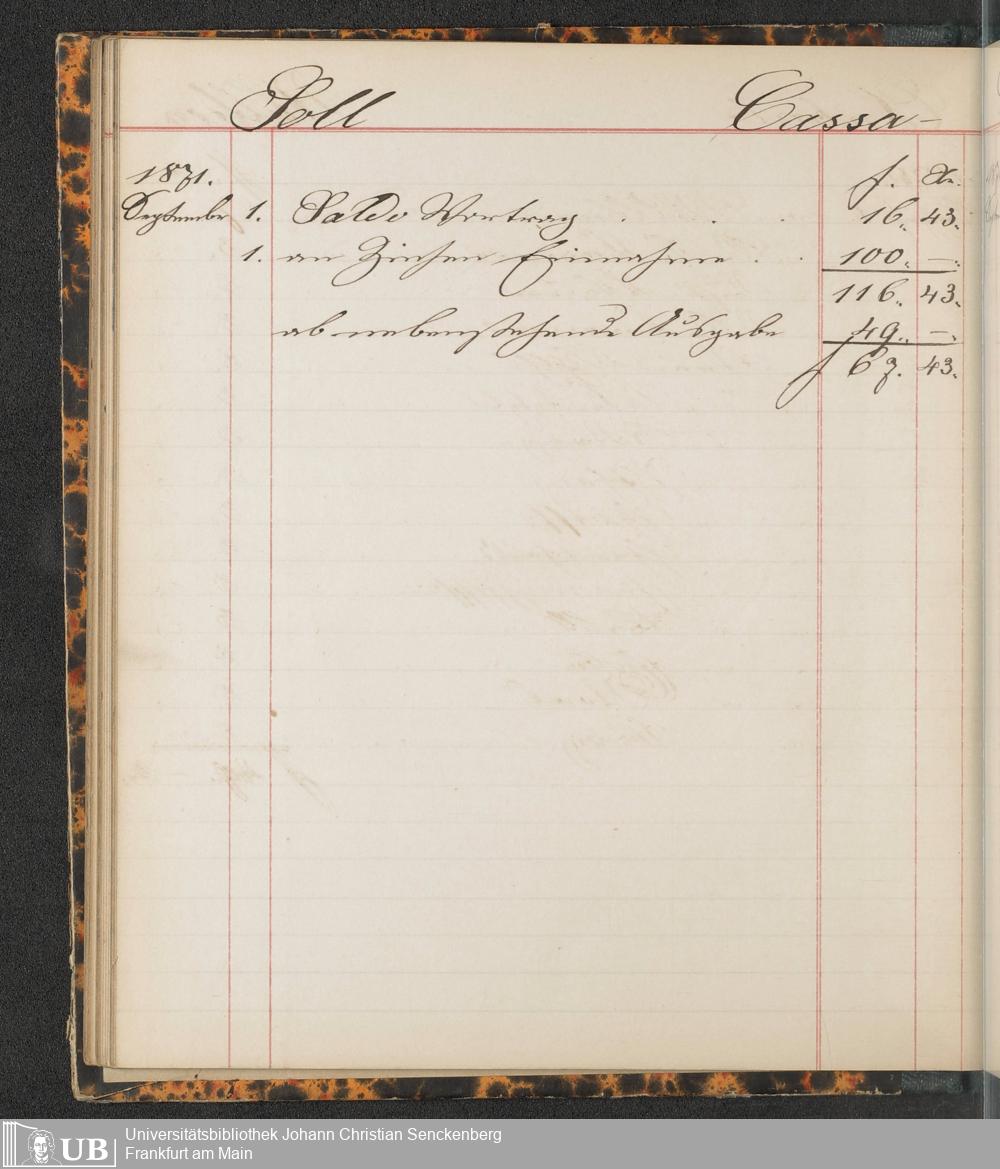 Soll Cassa-
1871. f. Xr.
September 1. Saldo Vortrag . . . 16. 43.
1. an Zinsen Einnahme . . 100. —.
116. 43.
ab nebenstehende Ausgabe 49. —.
f 67. 43.
UB Universitätsbibliothek Johann Christian Senckenberg
Frankfurt am Main